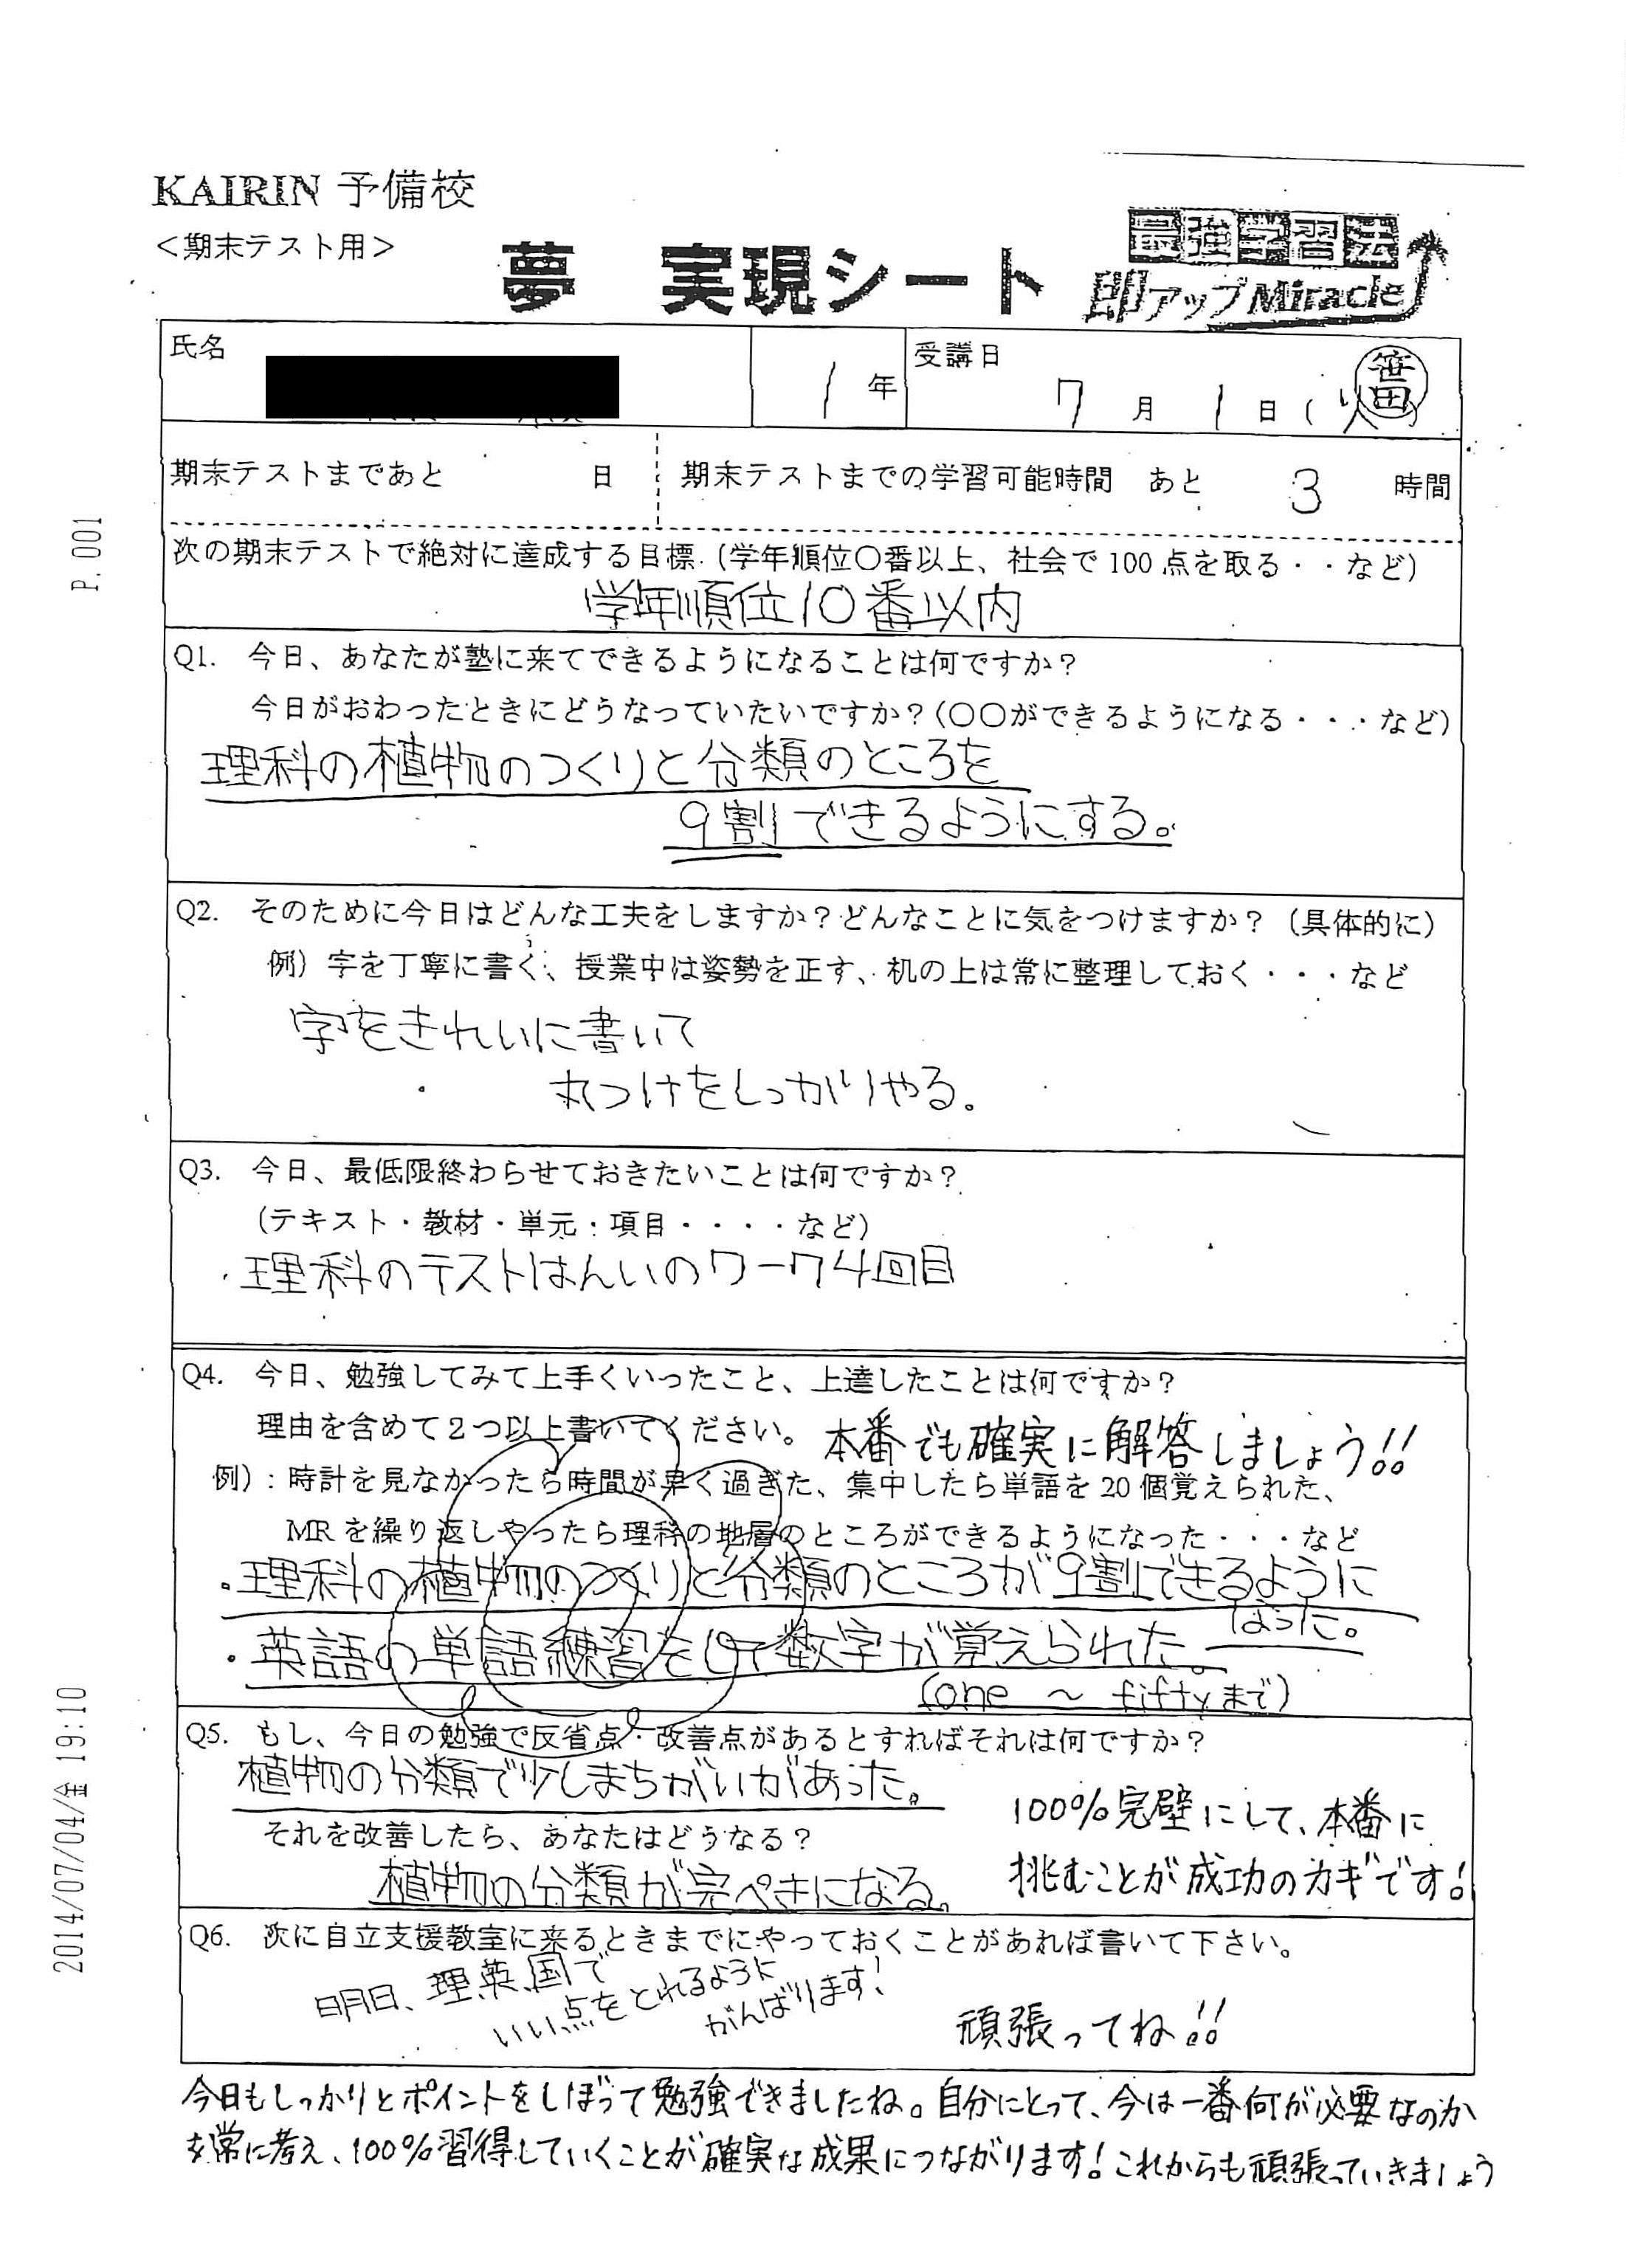 KAIRIN 予備校
<期末テスト用>
夢 実現シート
最強学習法
即アップMiracle
氏名
1年
受講日
7月1日(火)
笹田
期末テストまであと 日
期末テストまでの学習可能時間 あと 3 時間
次の期末テストで絶対に達成する目標.(学年順位〇番以上、社会で100点を取る・・など)
学年順位10番以内
Q1. 今日、あなたが塾に来てできるようになることは何ですか?
今日がおわったときにどうなっていたいですか?(〇〇ができるようになる・・・など)
理科の植物のつくりと分類のところを
9割できるようにする。
Q2. そのために今日はどんな工夫をしますか?どんなことに気をつけますか?(具体的に)
例)字を丁寧に書く、授業中は姿勢を正す、机の上は常に整理しておく・・・など
字をきれいに書いて
丸つけをしっかりやる。
Q3. 今日、最低限終わらせておきたいことは何ですか?
(テキスト・教材・単元・項目・・・・など)
・理科のテストはんいのワーク4回目
Q4. 今日、勉強してみて上手くいったこと、上達したことは何ですか?
理由を含めて2つ以上書いてください。
本番でも確実に解答しましょう!!
例):時計を見なかったら時間が早く過ぎた、集中したら単語を20個覚えられた、
MRを繰り返しやったら理科の地層のところができるようになった・・・など
・理科の植物のつくりと分類のところが9割できるように
なった。
・英語の単語練習をして数字が覚えられた。
(one ~ fiftyまで)
Q5. もし、今日の勉強で反省点・改善点があるとすればそれは何ですか?
植物の分類で少しまちがいがあった。
それを改善したら、あなたはどうなる?
植物の分類が完ぺきになる。
100%完璧にして、本番に
挑むことが成功のカギです!
Q6. 次に自立支援教室に来るときまでにやっておくことがあれば書いて下さい。
明日、理、英、国で
いい点をとれるように
がんばります!
頑張ってね!!
今日もしっかりとポイントをしぼって勉強できましたね。自分にとって、今は一番何が必要なのか
を常に考え、100%習得していくことが確実な成果につながります!これからも頑張っていきましょう
P.001
2014/07/04/金 19:10